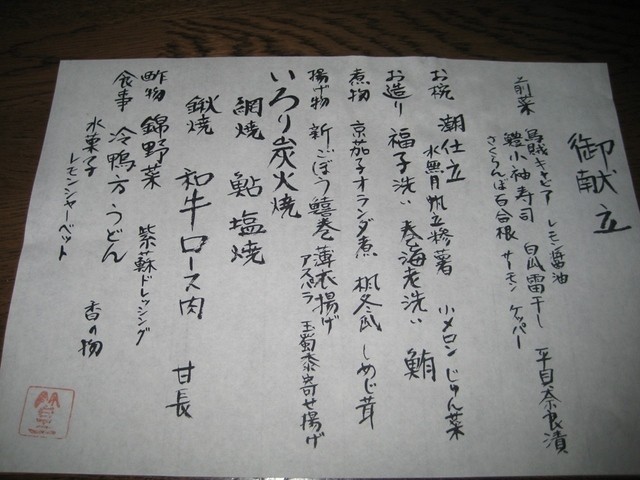 御献立
前菜 烏賊キャビア レモン醤油
鱧小袖寿司 白瓜雷干し 平貝奈良漬
さくらんぼ百合根 サーモン ケッパー
お椀 潮仕立 水無月帆立糝薯 小メロン じゅん菜
お造り 福子洗い 巻海老洗い 鮪
煮物 京茄子オランダ煮 楓冬瓜 しめじ茸
揚げ物 新ごぼう鱚巻 薄衣揚げ
アスパラ 玉蜀黍寄せ揚げ
いろり炭火焼
網焼 鮎塩焼
鍬焼 和牛ロース肉 甘長
酢物 錦野菜 紫蘇ドレッシング
食事 冷鴨方うどん 香の物
水菓子 レモンシャーベット